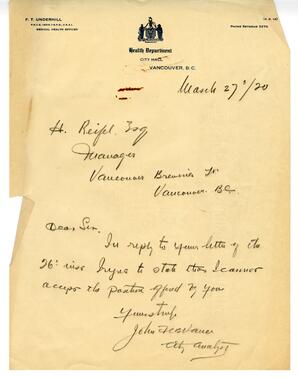 F. T. UNDERHILL
MEDICAL HEALTH OFFICER
Health Department
CITY HALL
VANCOUVER, B.C.
March 27th/20
H. Reifel Esq
Manager
Vancouver Breweries Ltd
Vancouver BC.
Dear Sir.
In reply to your letter of the
26th inst I regret to state that I cannot
accept the position offered by you
Yours truly
John F C B Vance
City Analyst